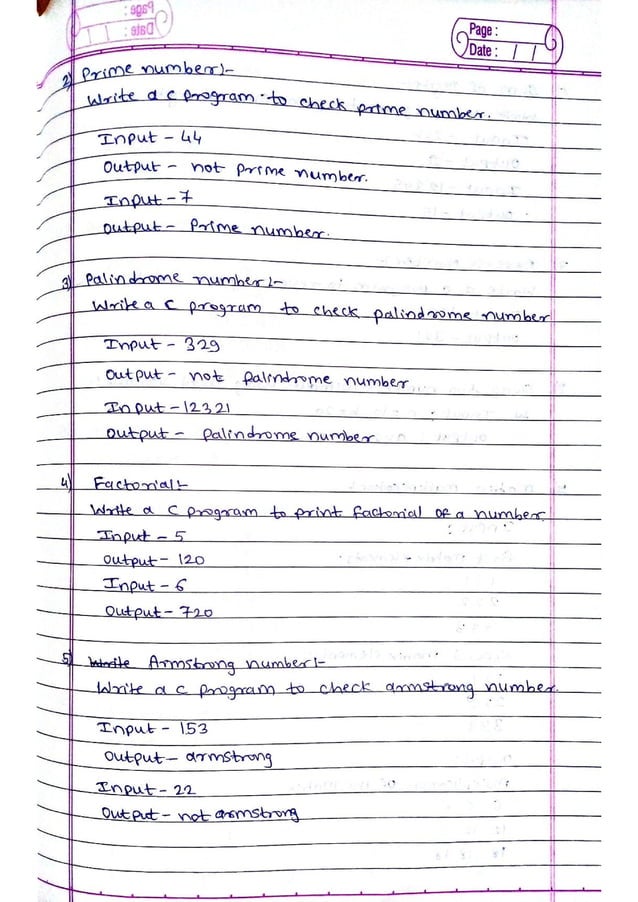 Page :
Date : / /
2) Prime number :-
Write a c program to check prime number.
Input - 44
Output - not prime number.
Input - 7
Output - Prime number.
3) Palindrome number :-
Write a c program to check palindrome number
Input - 329
Output - not palindrome number
Input - 12321
Output - palindrome number
4) Factorial :-
Write a c program to print factorial of a number.
Input - 5
Output - 120
Input - 6
Output - 720
5) Write Armstrong number :-
Write a c program to check armstrong number.
Input - 153
Output - armstrong
Input - 22
Output - not armstrong